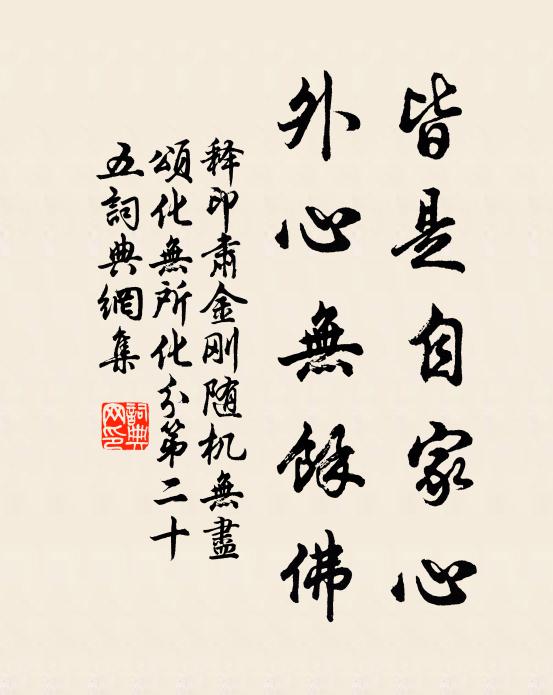 皆是自家心
外心無餘佛
释印肃金刚随机無盡
頌化無所化分第二十
五詞典網集
詞典
网印